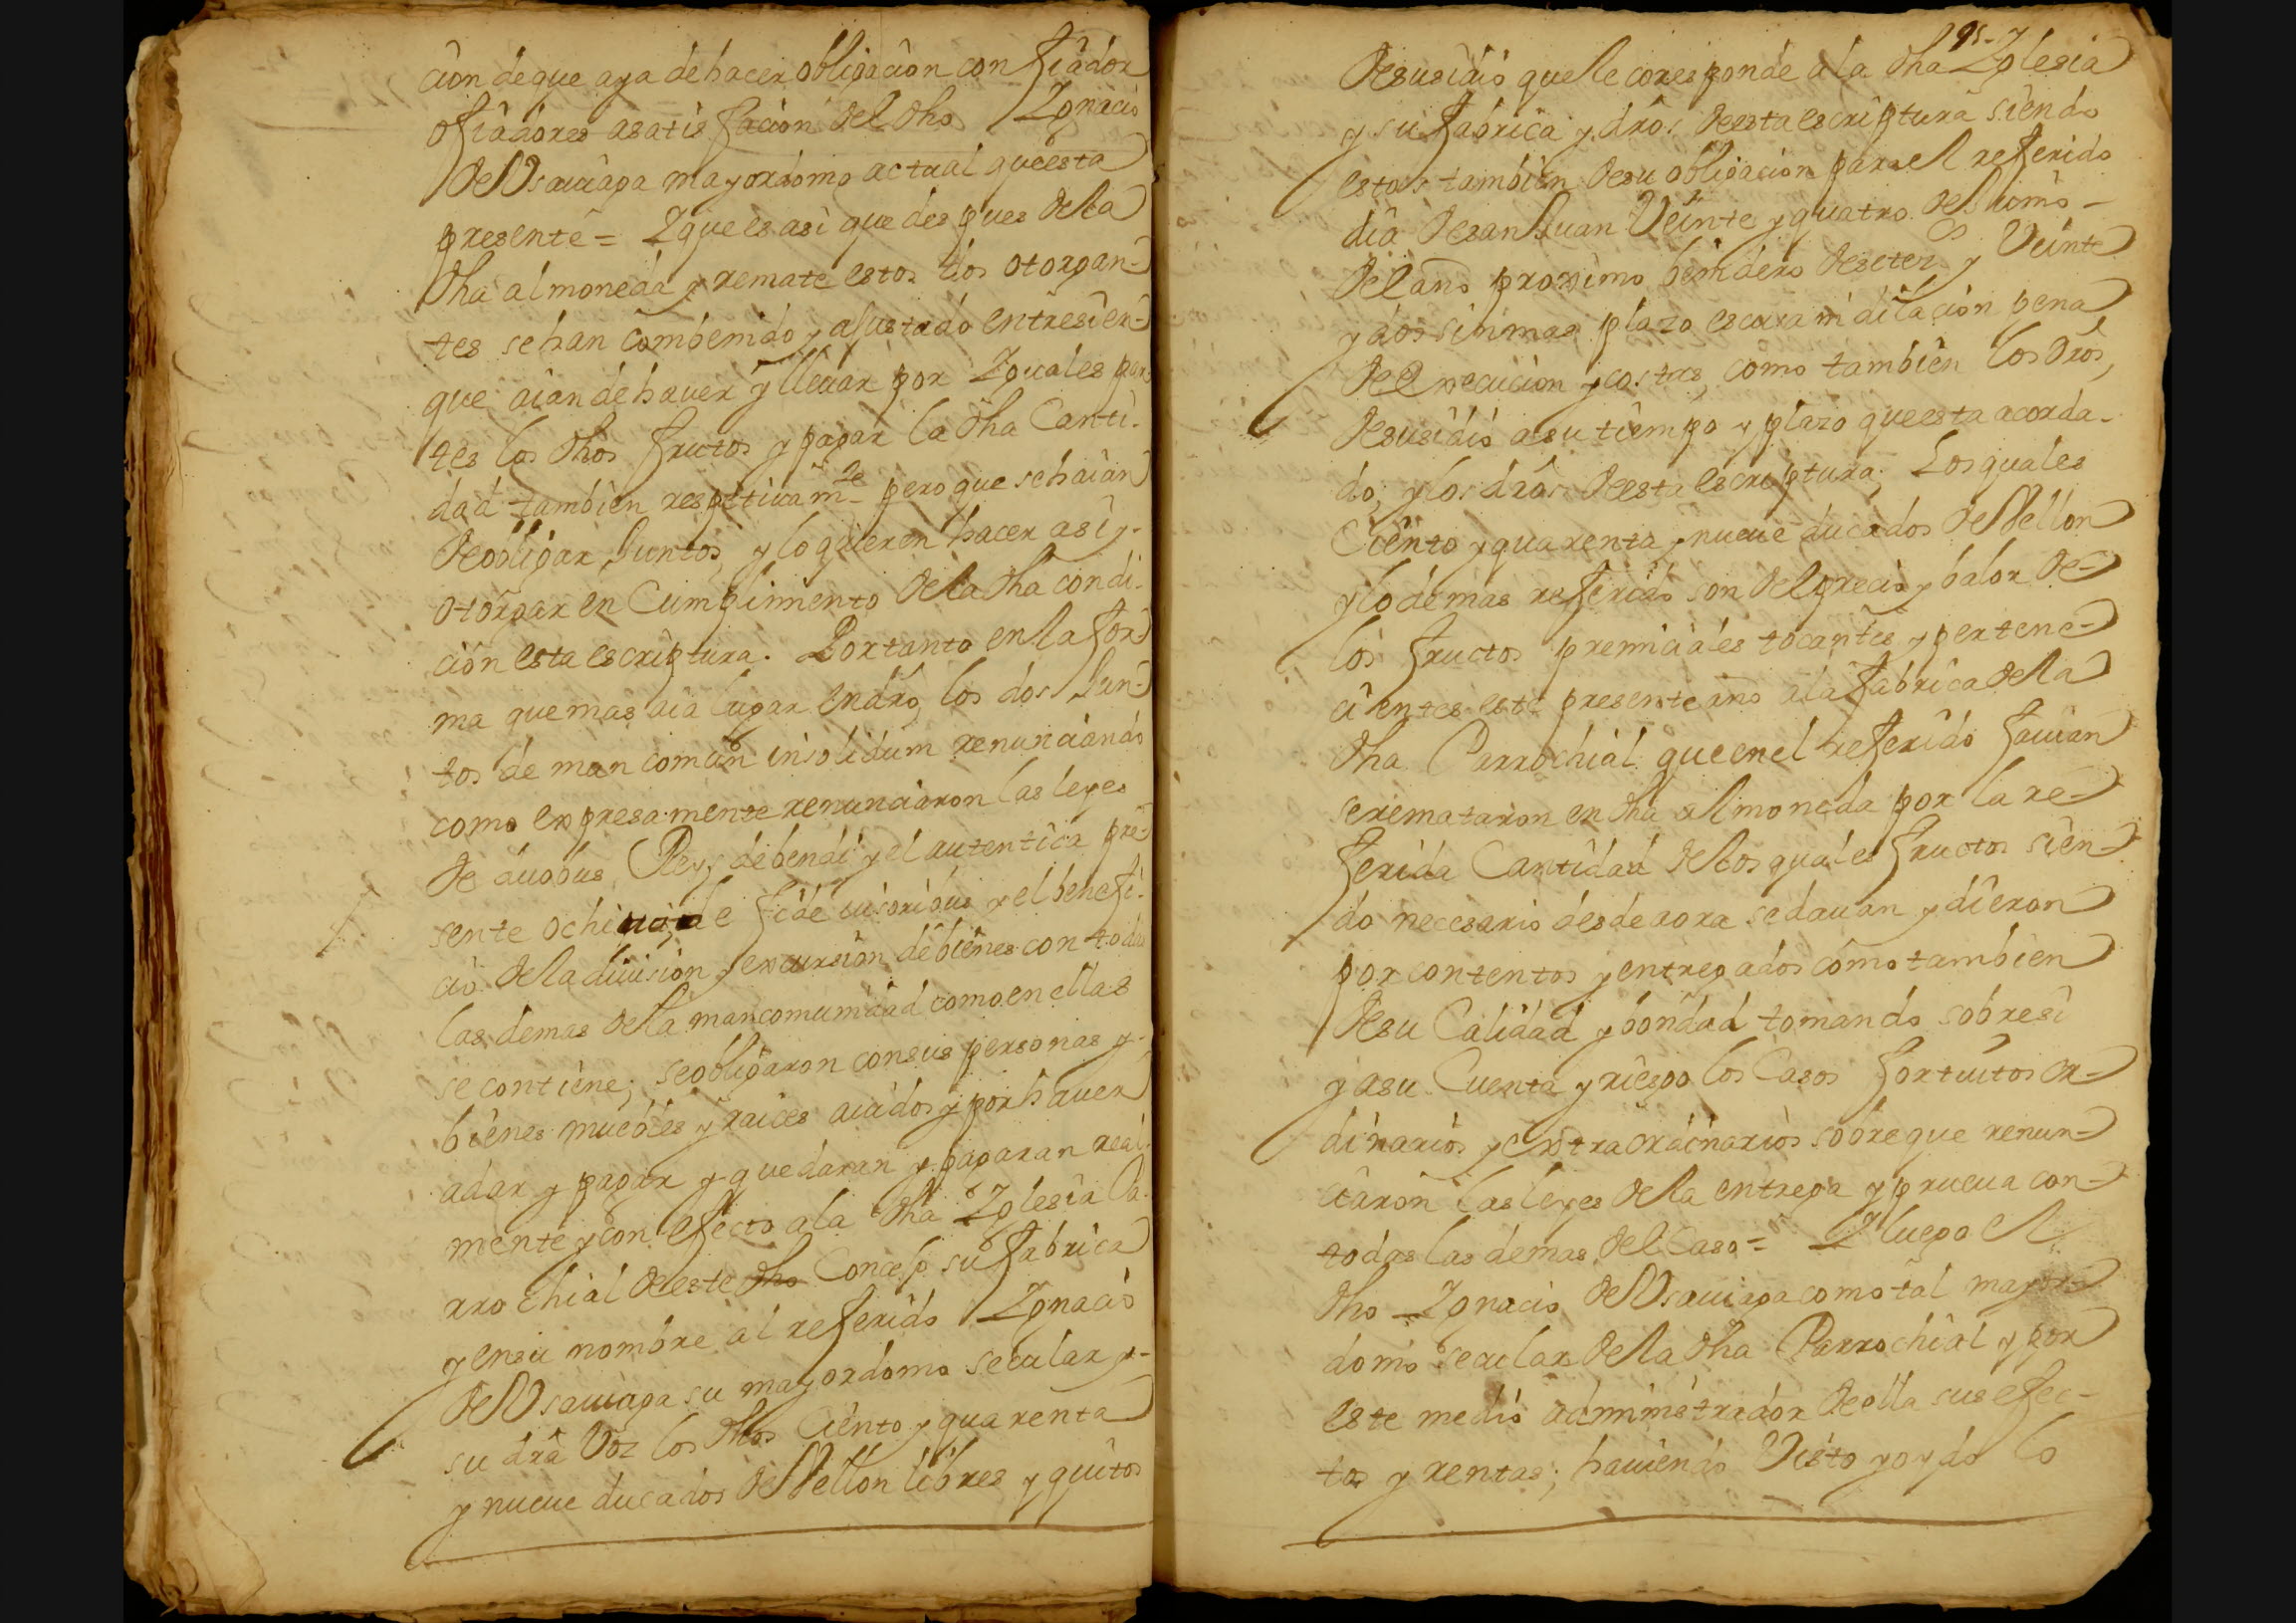 cion de que aya de hacer obligacion con fiador
o fiadores a satisfacion del dho Ygnacio
de Usauiaga mayordomo actual que esta
presente = Y que es asi que despues de la
dha almoneda y remate estos dos otorgan-
tes se han combenido y ajustado entre si en
que aian de hauer y lleuar por Yguales par
tes los dhos fructos y pagar la dha Canti-
dad tambien respetiuamte pero que se haian
de obligar Juntos, y lo quieren hacer asi y-
otorgar en Cumplimiento de la dha condi-
cion esta escriptura. Por tanto en la for-
ma que mas aia lugar en dro, los dos Jun-
tos de man comun insolidum renunciando
como expresamente renunciaron las leyes
de duobus Reys debendi y el autentica pre-
sente ochita, de fide iusoribus y el benefi-
cio de la diuision y excursion de bienes con todas
las demas de la mancomunidad como en ellas
se contiene; se obligaron con sus personas y-
bienes muebles y raices auidos y por hauer
a dar y pagar y que daran y pagaran real-
mente y con efecto a la dha Yglesia Pa-
rrochial de este dho Concejo su fabrica
y en su nombre al referido Ygnacio
de Usauiaga su mayordomo secular y-
su dra Voz los dhos Ciento y quarenta
y nueue ducados de Vellon libres y quitos
95-
de susidio que le coresponde a la dha Yglesia
y su fabrica y dros de esta escriptura siendo
estos tambien de su obligacion para el referido
dia de san Juan Veinte y quatro de Junio-
del año proximo benidero de setez.s y Veinte
y dos sin mas plazo escusa ni dilacion pena
de execucion y costas, como tambien los dros,
de susidio a su tiempo y plazo que esta acorda-
do, y los dros de esta escriptura; Los quales
Ciento y quarenta y nueue ducados de Vellon
y lo demas referido son del precio y balor de-
los fructos premiciales tocantes y pertene-
cientes este presente año a la fabrica de la
dha Parrochial que en el referido Jauian
se remataron en dha almoneda por la re-
ferida Cantidad de los quales fructos sien-
do necesario desde aora se dauan y dieron
por contentos y entregados como tambien
de su Calidad y bondad tomando sobre si
y a su Cuenta y riesgo los Casos fortuitos or-
dinarios y extraordinarios sobre que renun-
ciaron las leyes de la entrega y prueua con-
todas las demas del Caso = Y luego el
dho Ygnacio de Usauiaga como tal mayor-
domo secular de la dha Parrochial y por
este medio administrador de ella sus efec-
tos y rentas; hauiendo Visto y oydo lo